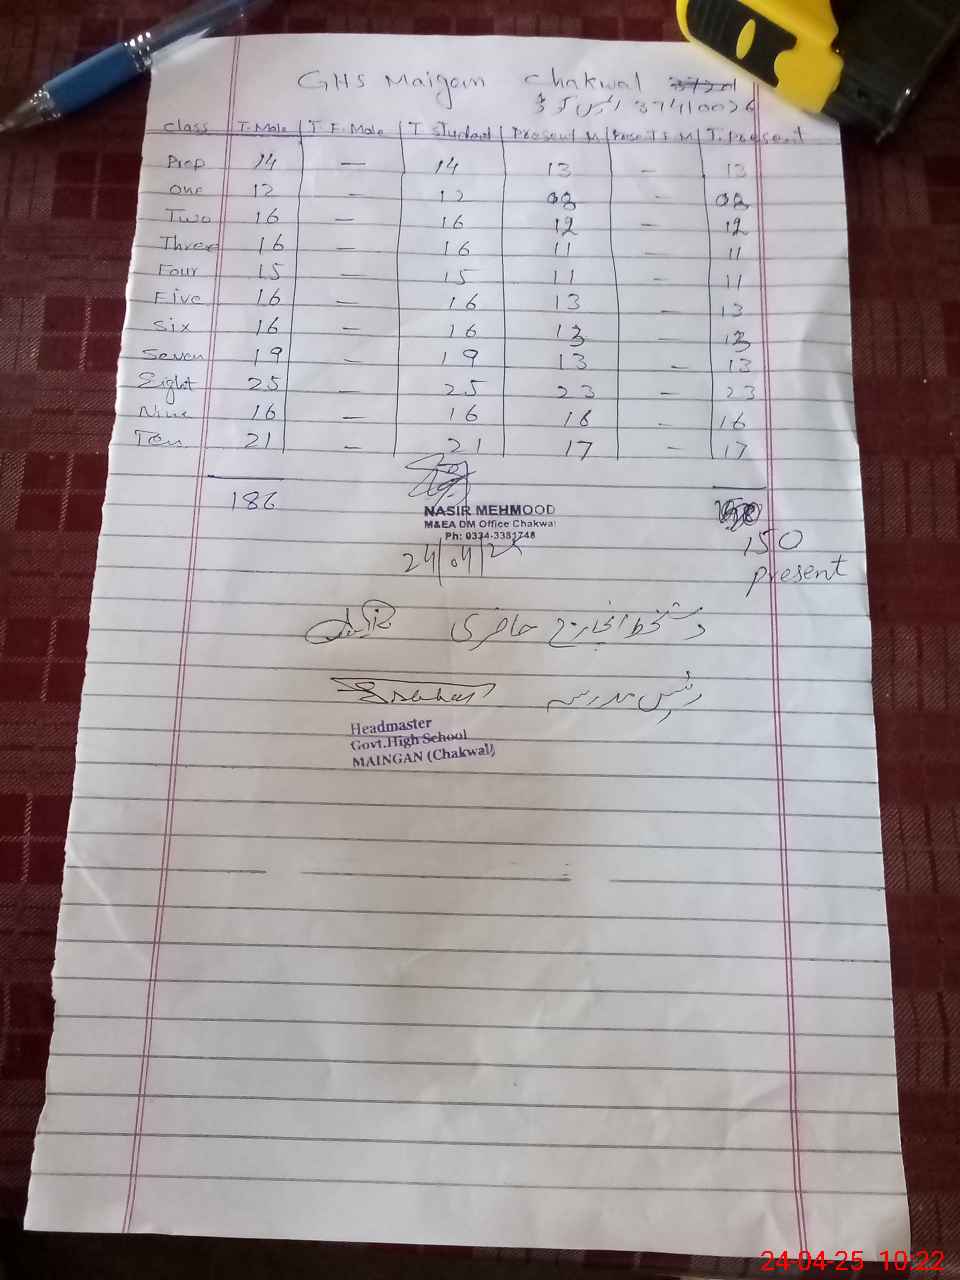 GHS Maigan Chakwal
37110026
Class T. Male T F. Male T Student Present M Present F. M T. Present
Prep 14 — 14 13 — 13
One 12 — 12 08 — 08
Two 16 — 16 12 — 12
Three 16 — 16 11 — 11
Four 15 — 15 11 — 11
Five 16 — 16 13 — 13
Six 16 — 16 13 — 13
Seven 19 — 19 13 — 13
Eight 25 — 25 23 — 23
Nine 16 — 16 16 — 16
Ten 21 — 21 17 — 17
186
NASIR MEHMOOD
M&EA DM Office Chakwal
Ph: 0334-3381748
150
present
24/04/25
دستخط انچارج حاضری
رئیس مدرسہ
Headmaster
Govt.High School
MAINGAN (Chakwal)
24-04-25 10:22